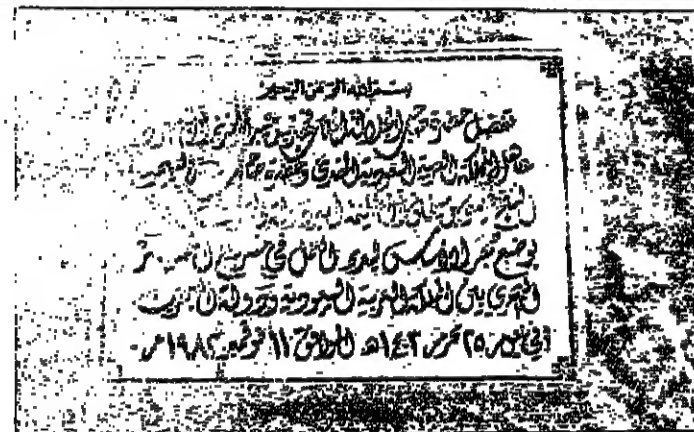 بسم الله الرحمن الرحيم
تفضل حضرة صاحب الجلالة الملك فهد بن عبد العزيز آل
عاهل المملكة العربية السعودية المفدى وحضرة صاحب السمو
الشيخ
بوضع حجر الأساس لبدء العمل في مشروع الجسر
البحري بين المملكة العربية السعودية ودولة البحرين
في يوم ٢٥ محرم ١٤٠٣هـ الموافق ١١ نوفمبر ١٩٨٢م